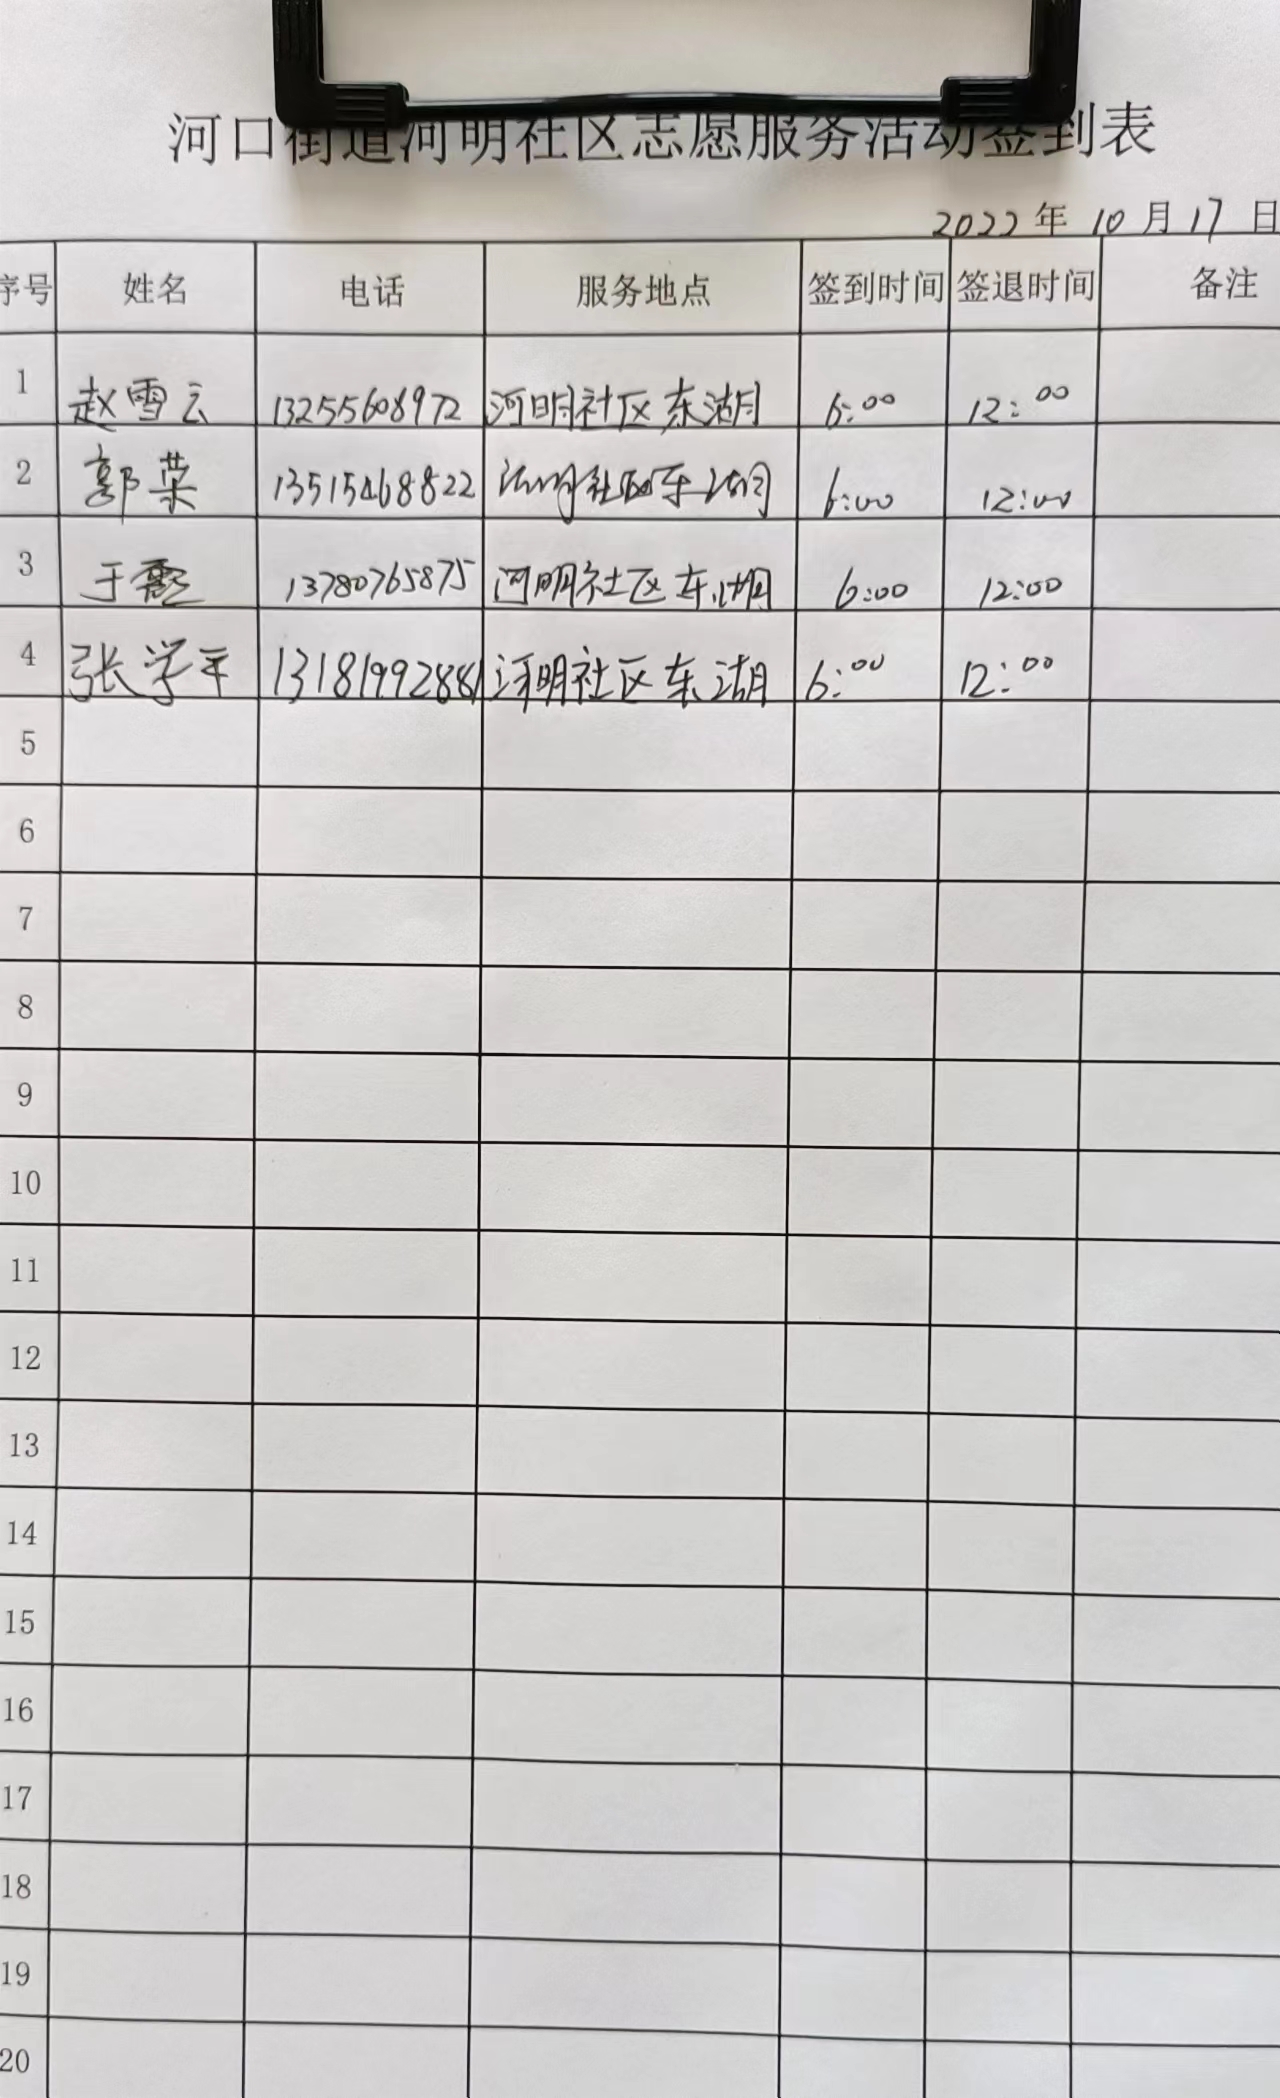 河口街道河明社区志愿服务活动签到表
2022年10月17日
序号 姓名 电话 服务地点 签到时间 签退时间 备注
1 赵雪云 13255608972 河明社区东湖 6:00 12:00
2 郭荣 13515468822 河明社区东湖 6:00 12:00
3 于霞 13780765875 河明社区东湖 6:00 12:00
4 张学平 1318199288 河明社区东湖 6:00 12:00
5
6
7
8
9
10
11
12
13
14
15
16
17
18
19
20